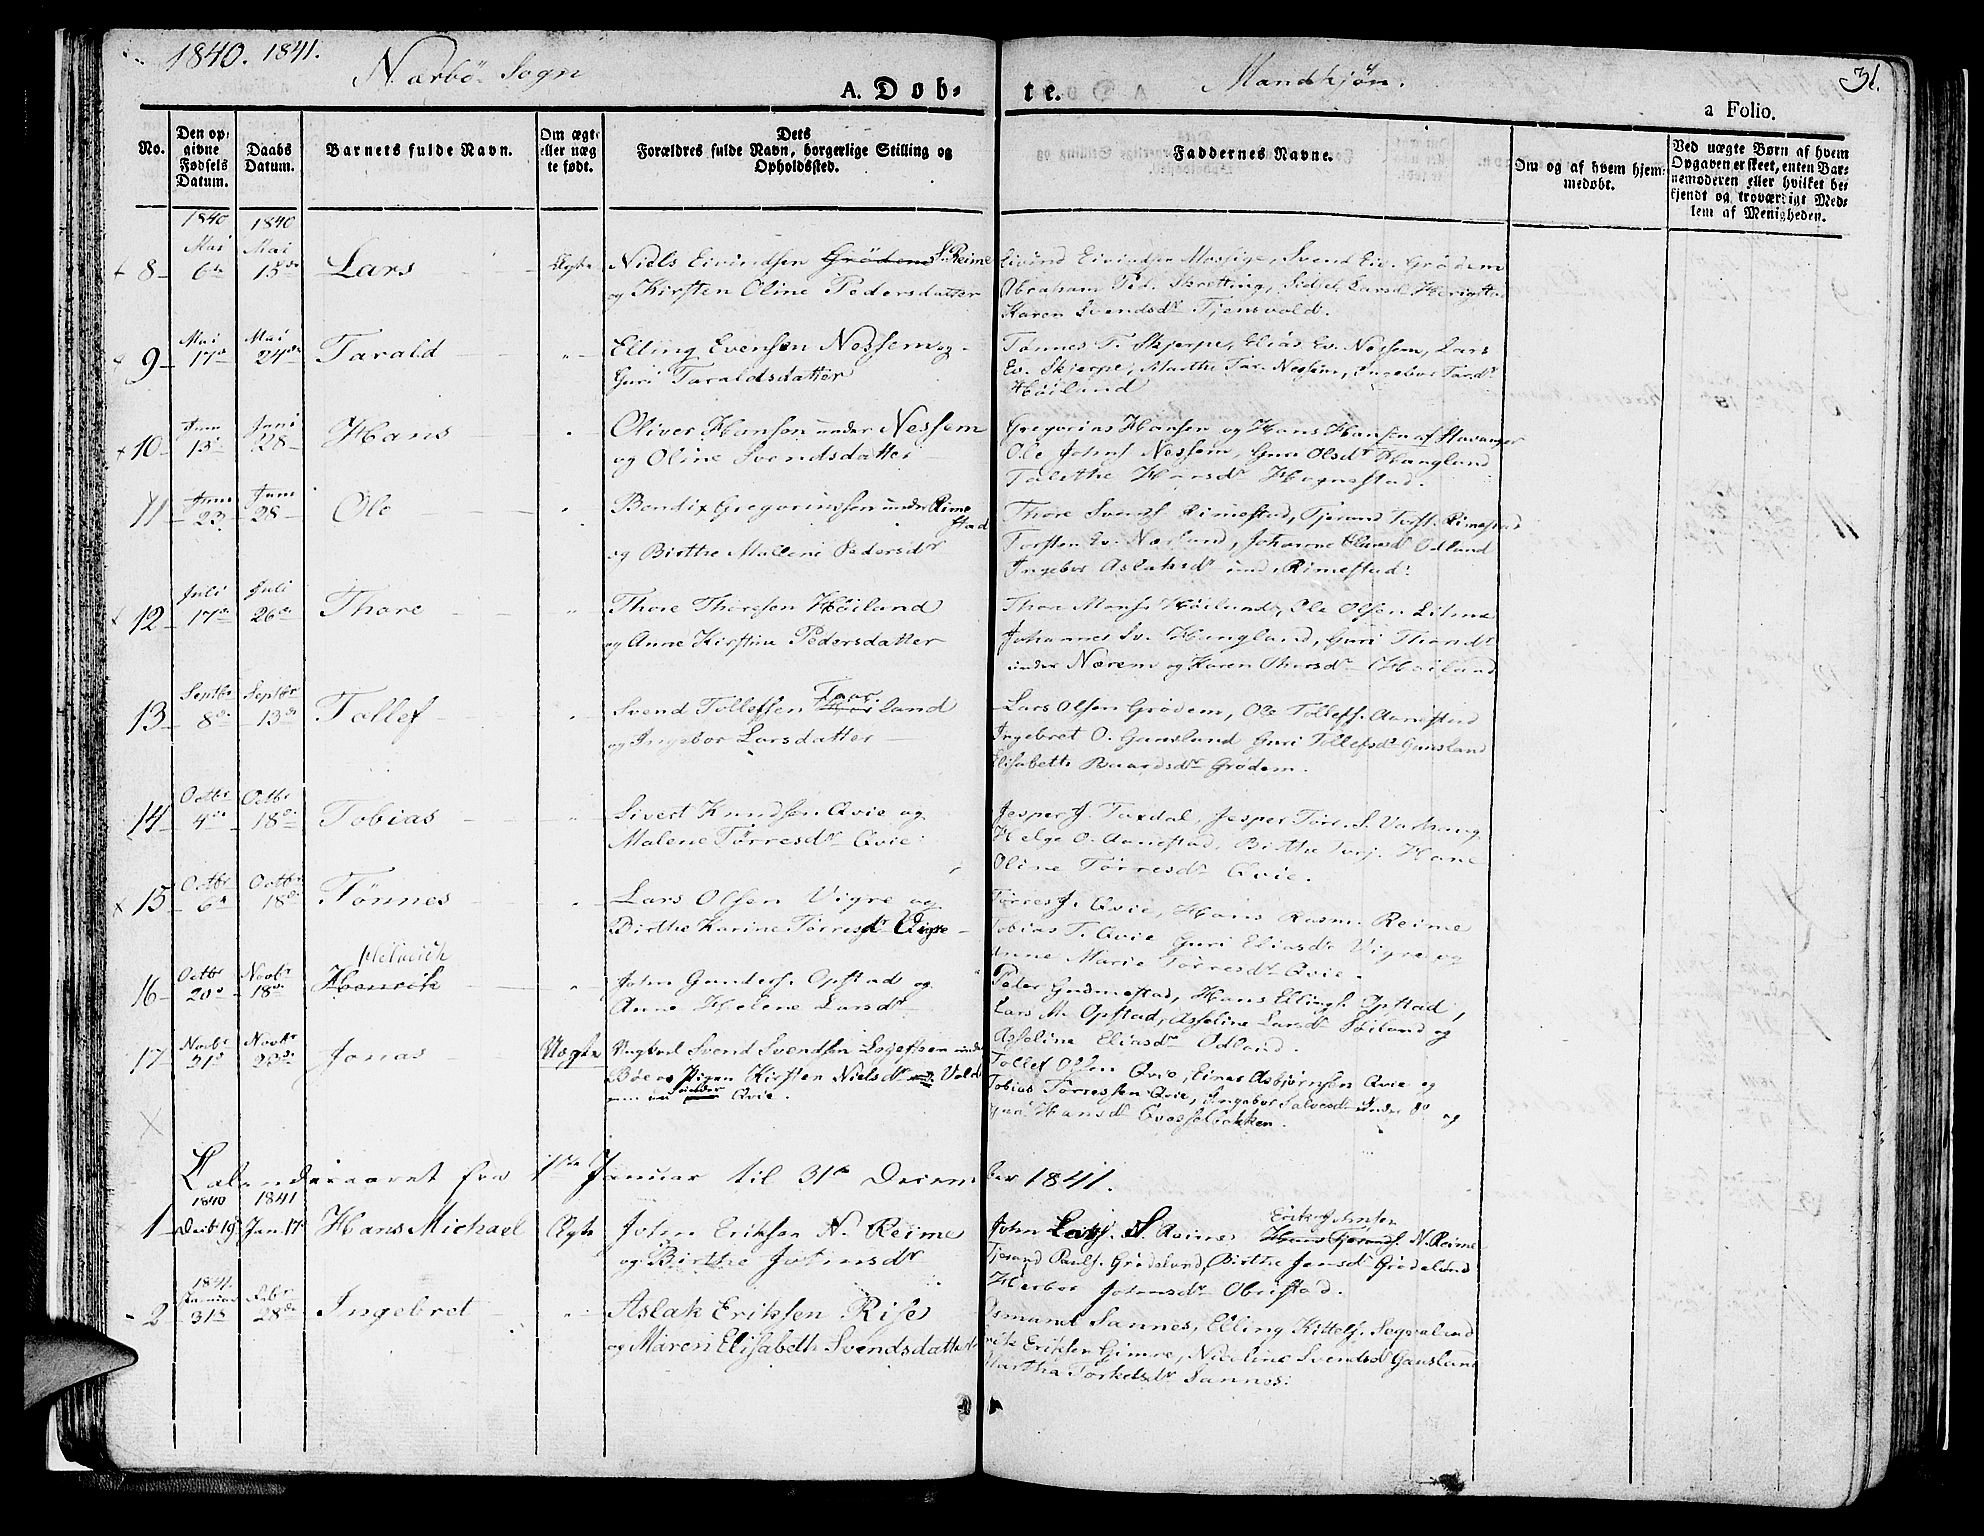 1840. 1841.
Nærbö Sogn
A. Döb-
te.
Mandkjøn.
31.
a Folio.
No.
Den op-
givne
Fødsels
Datum.
Daabs
Datum.
Barnets fulde Navn.
Om ægte
eller uæg
te født.
Dets
Forældres fulde Navn, borgerlige Stilling og
Opholdssted.
Faddernes Navne.
Om og af hvem hjem-
medøbt.
Ved uægte Børn af hvem
Opgaven er skeet, enten Bar-
nemoderen eller hvilket be-
kjendt og troværdigt Med-
lem af Menigheden.
1840 1840
8 Mai 6te Mai 15de Lars Ægte Niels Eivindsen Grödem S. Reime
og Kirsten Oline Pedersdatter
Eivind Eivindsen Mossige, Svend Eiv. Grødem
Abraham Ped. Skretting, Sidsel Larsd.
Karen Svendsdr Tjensvold.
9 Mai 17de Mai 24de Tarald " Elling Evensen Nessem og
Guri Taraldsdatter
Tønnes T. Skjerpe, Elias Ev. Nessem, Lars
Ev. Skjerpe, Marthe Tar. Nessem, Ingebor Tardr
Høiland
10 Juni 15 Juni 28 Hans " Oliver Hansen under Nessem
og Oline Svendsdatter
Gregorius Hansen og Hans Hansen af Stavanger
Ole Johns Nessem, Guri Olsdr Haugland
Talette Hansdr Hognestad.
11 Juni 23 Juni 28 Ole " Bendix Gregoriussen under Rime
stad
og Birthe Mallene Pedersdr
Thore Svends. Rimestad, Tjerand Torst. Rimestad
Torsten Ev. Nærland, Johanne Odland
Ingebor Aslaksdr und. Rimestad.
12 Juli 17de Juli 26de Thore " Thore Thoresen Höiland
og Anne Kirstine Pedersdatter
Thore Monss. Höiland, Ole Olsen
Johannes Sv. Haugland, Guri Thoresdr
under Nærem og Karen Høiland
13 Septbr 8de Septbr 13de Tollef " Svend Tollefsen Haarland Taar
og Ingebor Larsdatter
Lars Olsen Grødem, Ole Tollefs. Aanestad
Ingebret O. Gausland Guri Tollefsdr Gausland
Elisabeth Baardsdr Grødem.
14 Octbr 4de Octbr 18de Tobias " Sivert Knudsen Qvie og
Malene Törresdr Qvie.
Jesper J. Taxdal, Jesper Törr. S. Varhaug
Helge O. Aanestad, Birthe Torj. Hane
Oline Törresdr Qvie.
15 Octbr 6te Octbr 18de Tönnes " Lars Olsen Vigre og
Birthe Karine Törresdr Vigre
Törres J. Qvie, Hans Rasm. Reime
Tobias T. Qvie Guri Eliasdr Vigre og
Anne Marie Törresdr Qvie.
16 Octbr 20de Novbr 18de Henrik Helmich " John Gunders. Opstad og
Anne Helene Larsdr
Peder Gudmestad, Hans Ellings. Opstad,
Lars M. Opstad, Asseline Larsdr Höiland og
Asseline Eliasdr Odland.
17 Novbr 21de Novbr Jonas Uægte Ungkarl Svend Svendsen under
Böe og Pigen Kirsten Nielsdr
under Qvie.
Tollef Olsen Qvie, Einar Asbjörnsen Qvie og
Tobias Törressen Qvie, Ingebor Salvesdr under Do og
Hansdr Qvasselbakken.
Calenderaaret fra 1ste Januar til 31te December 1841.
1840 1841
1 Decb. 19 Jan. 17 Hans Michael Ægte John Eriksen N. Reime
og Birthe Johnsdr
John Lars. S. Reime Erik Johnsen N. Reime
Tjerand Pauls. Grødeland, Birthe Jonsdr Grødeland
Herbor Johnsdr Obrestad.
2 1841 Januar 31te Febr 28de Ingebret " Aslak Eriksen Rise
og Maren Elisabeth Svendsdatter
Asmund Sannes, Elling Kittels. Sogvalund
Erik Eriksen Gimre, Nicoline Svendsdr Gausland
Martha Torkelsdr Sannes.